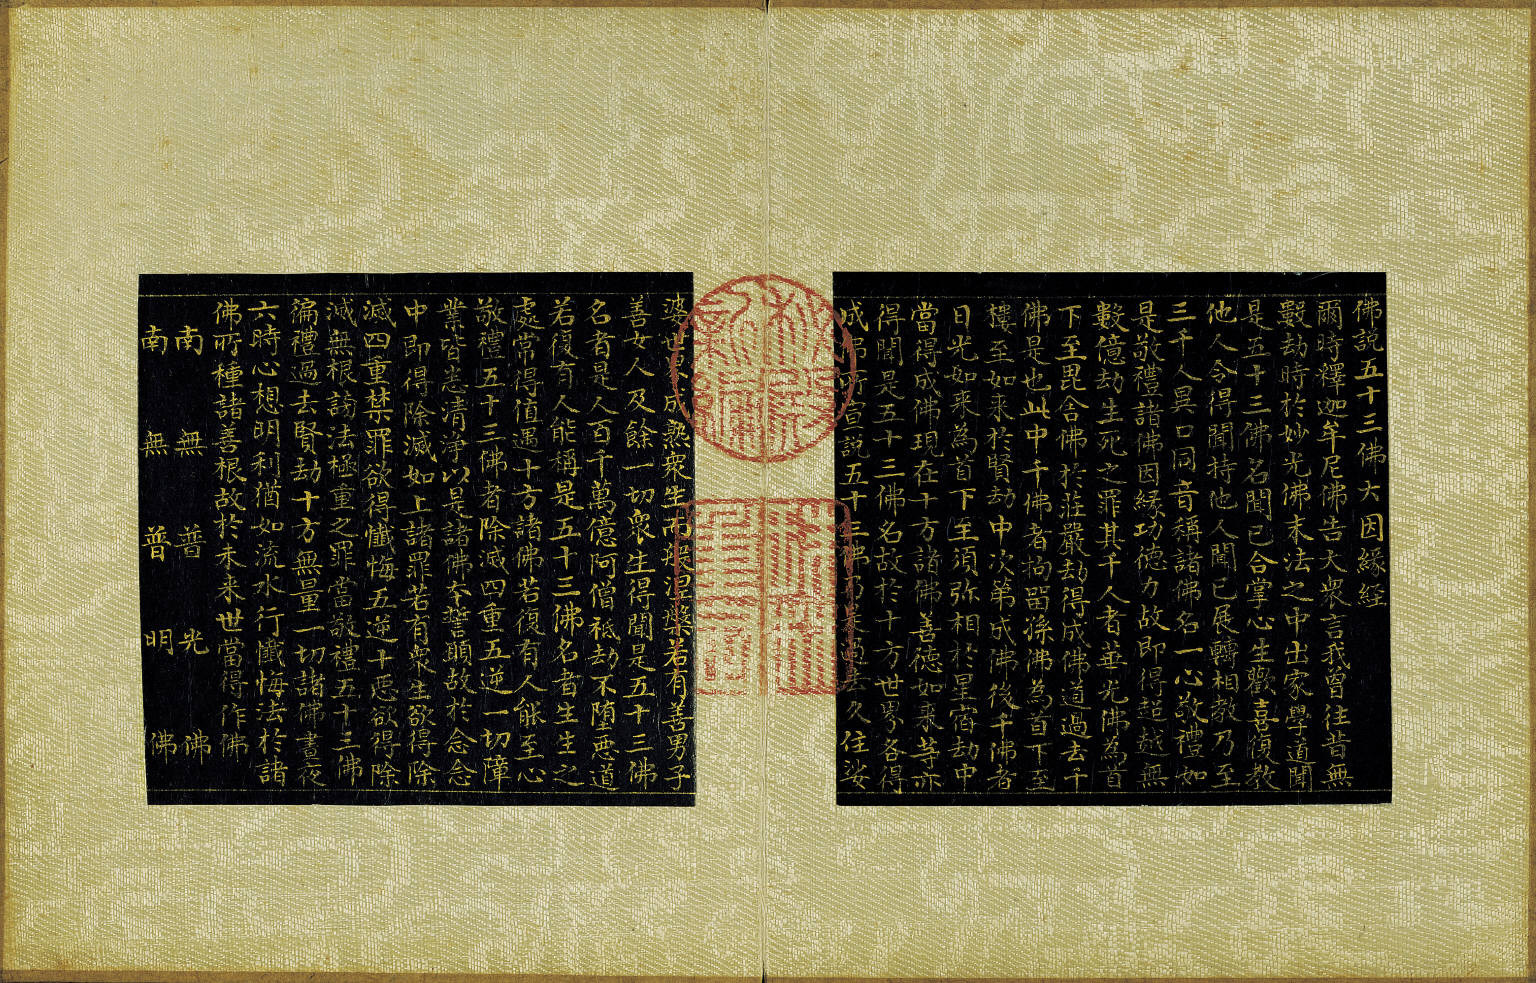 佛說五十三佛大因緣經
爾時釋迦牟尼佛告大衆言我曾往昔無
數劫時於妙光佛末法之中出家學道聞
是五十三佛名聞已合掌心生歡喜復教
他人令得聞持他人聞已展轉相教乃至
三千人異口同音稱諸佛名一心敬禮如
是敬禮諸佛因緣功德力故即得超越無
數億劫生死之罪其千人者華光佛為首
下至毘舍佛於莊嚴劫得成佛道過去千
佛是也此中千佛者拘留孫佛為首下至
樓至如來於賢劫中次第成佛後千佛者
日光如來為首下至須弥相於星宿劫中
當得成佛現在十方諸佛善德如來等亦
得聞是五十三佛名故於十方世界各得
成 宣說五十三佛乃是過去久住娑
婆世 成熟衆生而般涅槃若有善男子
善女人及餘一切衆生得聞是五十三佛
名者是人百千萬億阿僧祇劫不墮惡道
若復有人能稱是五十三佛名者生生之
處常得值遇十方諸佛若復有人能至心
敬禮五十三佛者除滅四重五逆一切障
業皆悉清淨以是諸佛本誓願故於念念
中即得除滅如上諸罪若有衆生欲得除
滅四重禁罪欲得懺悔五逆十惡欲得除
滅無根謗法極重之罪當敬禮五十三佛
徧禮過去賢劫十方無量一切諸佛晝夜
六時心想明利猶如流水行懺悔法於諸
佛所種諸善根故於未来世當得作佛
南無普光佛
南無普明佛